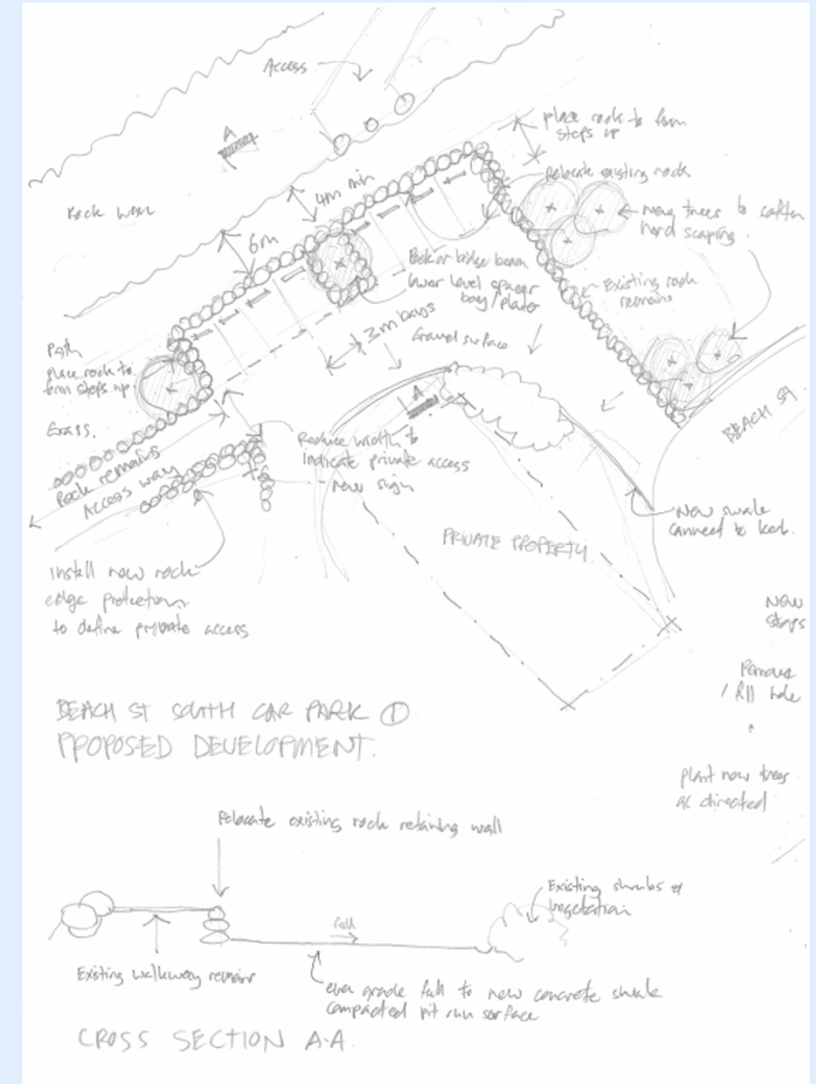 Access
place rock to form
steps up
A
Relocate existing rock
4m min
New trees to soften
hard scaping.
Rock wall
6m
Rock or bridge beam
lower level spacer
bay/planter
Existing rock
remains
3m bays
Gravel surface
Path
place rock to
form steps up
A
BEACH ST
Grass.
Rock remains
Access way
Reduce width to
indicate private access
- new sign
New swale
connect to kerb.
PRIVATE PROPERTY
Install new rock
edge protection
to define private access
New
steps
Remove
/ fill hole
BEACH ST SOUTH CAR PARK 1
PROPOSED DEVELOPMENT.
plant new trees
as directed
Relocate existing rock retaining wall
Existing shrubs &
vegetation
fall
Existing walkway remains
even grade fall to new concrete swale
compacted pit run surface
CROSS SECTION A-A.